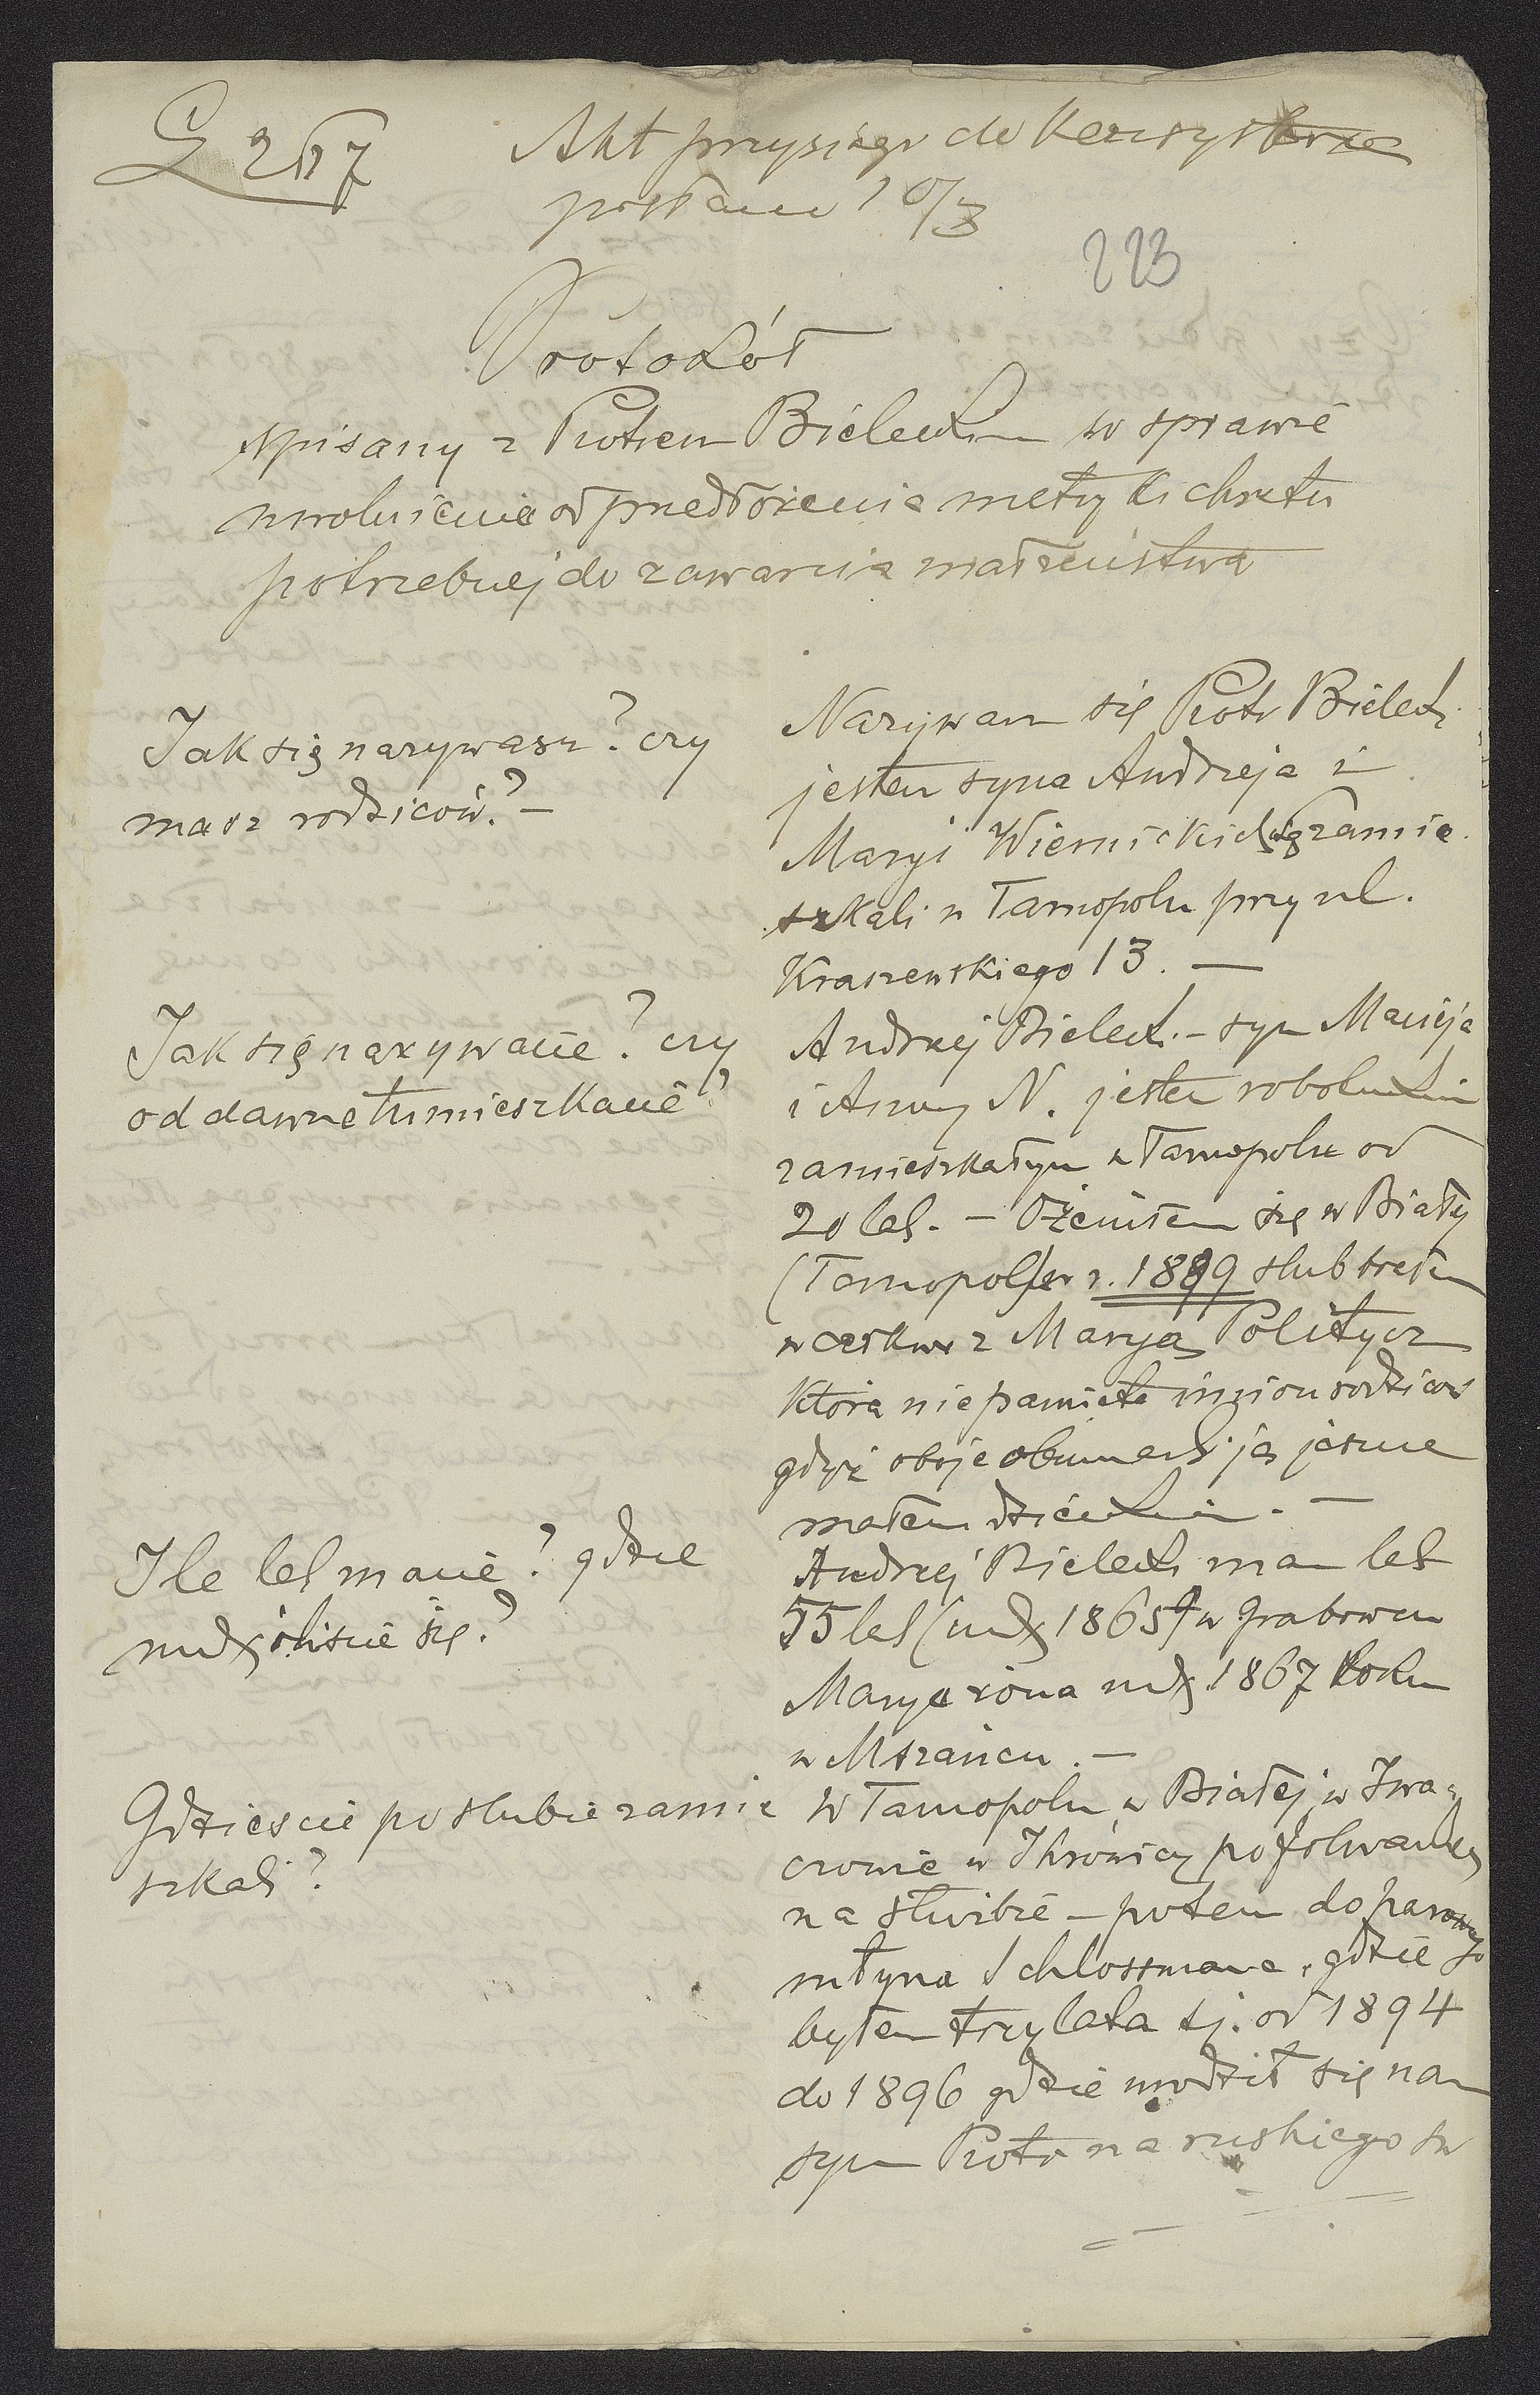 L 257
Akt przysięgi do Konsystorza
posłano 10/3
223
Protokół
spisany z Piotrem Bieleckim w sprawie
uwolnienia od przedłożenia metryki chrztu
potrzebnej do zawarcia małżeństwa
Jak się nazywasz? czy
masz rodziców? —
Nazywam się Piotr Bielecki
jestem syna Andrzeja i
Maryi Wiernickich zamie
szkali w Tarnopolu przy ul.
Kraszewskiego 13. —
Jak się nazywacie? czy
od dawna tu mieszkacie?
Andrzej Bielecki - syn Macieja
i Anny N. jestem robotnikiem
zamieszkałym w Tarnopolu od
20 lat. — Ożeniłem się w Białej
(Tarnopol) w r. 1889 ślub brałem
w cerkwi z Maryą Politycz
która nie pamięta imion rodziców
gdyż oboje obumarli ją jeszcze
małem dzieckiem. —
Ile lat macie? gdzie
urodziliście się?
Andrzej Bielecki mam lat
55 lat (urodz 1865) w Grabowcu
Marya żona urodz 1867 roku
w Mszańcu. —
Gdzieście po ślubie zamie
szkali?
W Tarnopolu, w Białej, w Iwa-
czowie w Ihrowicy po folwarkach
na służbie — potem do parowego
młyna Schlossmana, gdzie
byłem trzy lata tj. od 1894
do 1896 gdzie urodził się nam
syn Piotr na ruskiego św